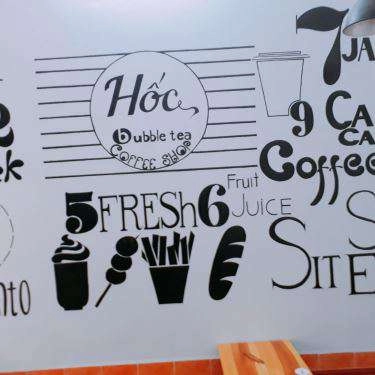 Hốc
bubble tea
COFFEE SHOP
5 FRESh 6 Fruit
JUICE
7
JA
9 CA
CA
Coffee
S
SITE